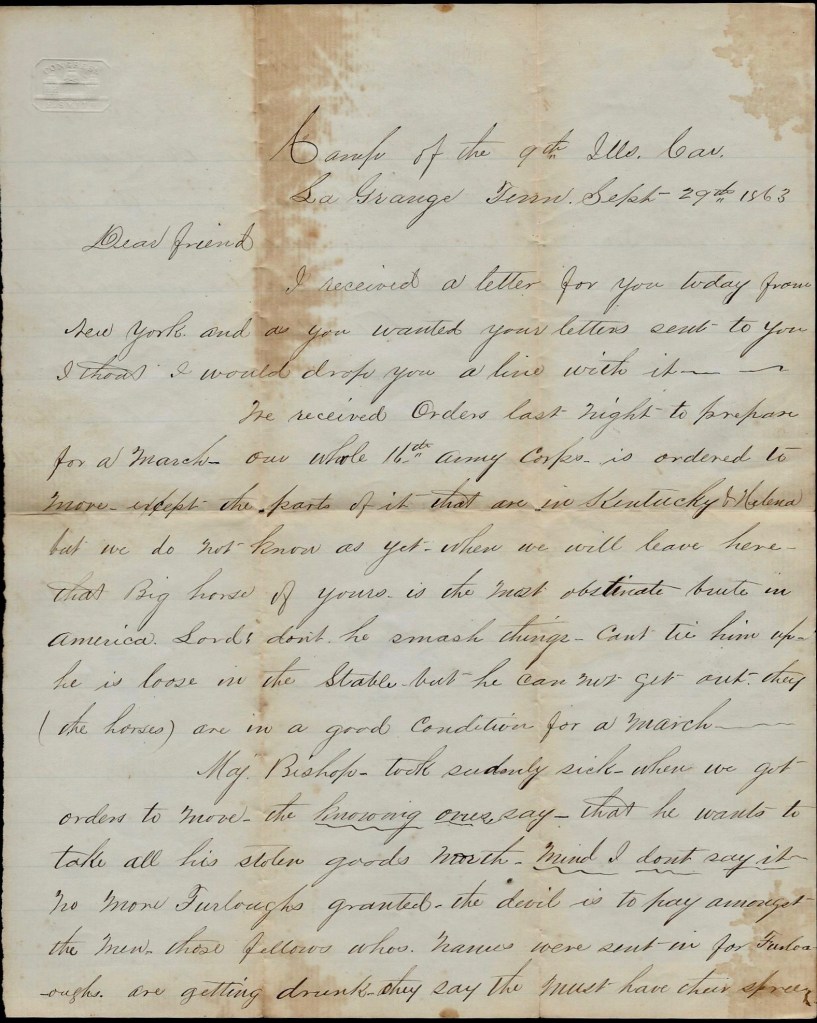 Camp of the 9th Ills. Cav.
La Grange Tenn. Sept 29th 1863
Dear friend
I received a letter for you today from
New York. and as you wanted your letters sent to you
I thoat I would drop you a line with it
We received Orders last Night to prepare
for a March - our whole 16th Army Corps - is ordered to
Move - except the parts of it that are in Kentucky & Helena
but we do Not Know as yet - when we will leave here -
that Big horse of yours is the Most obstinate brute in
America. Lords dont he smash things - Cant tie him up -
he is loose in the Stable - but he can not get out. they
(the horses) are in a good Condition for a March
Maj. Bishop - took sudenly sick - when we got
orders to Move - the Knowing ones, say - that he wants to
take all his stolen goods North - Mind I dont say it
No More Furloughs granted - the devil is to pay amongst
the Men - those fellows whos. Names were sent in for Furlo
-oughs. are getting drunk - they say the Must have their spree